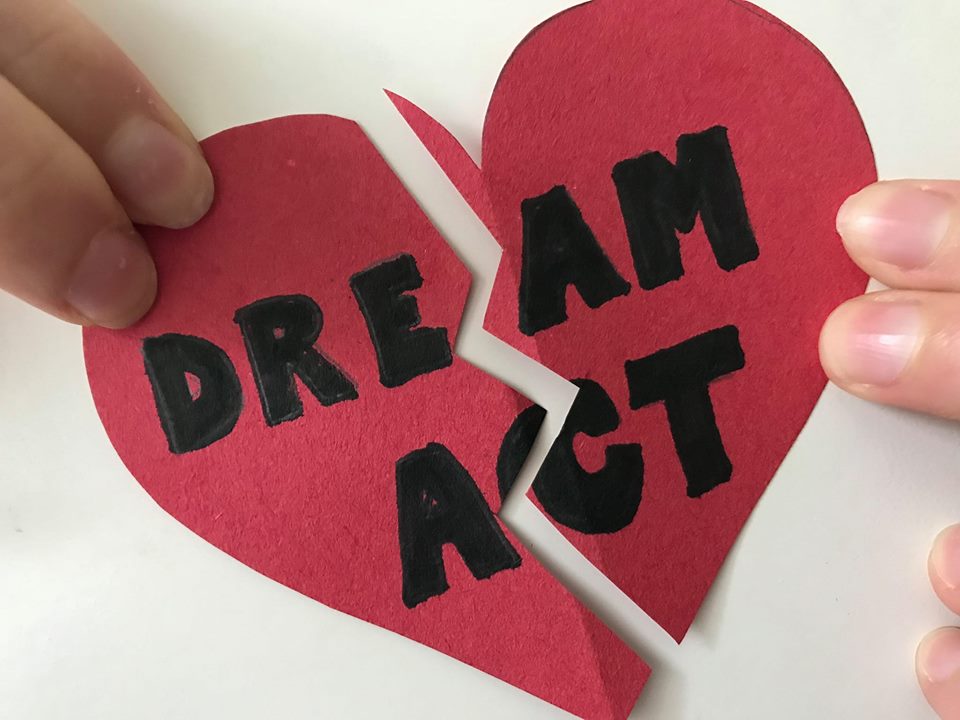 DREAM
ACT